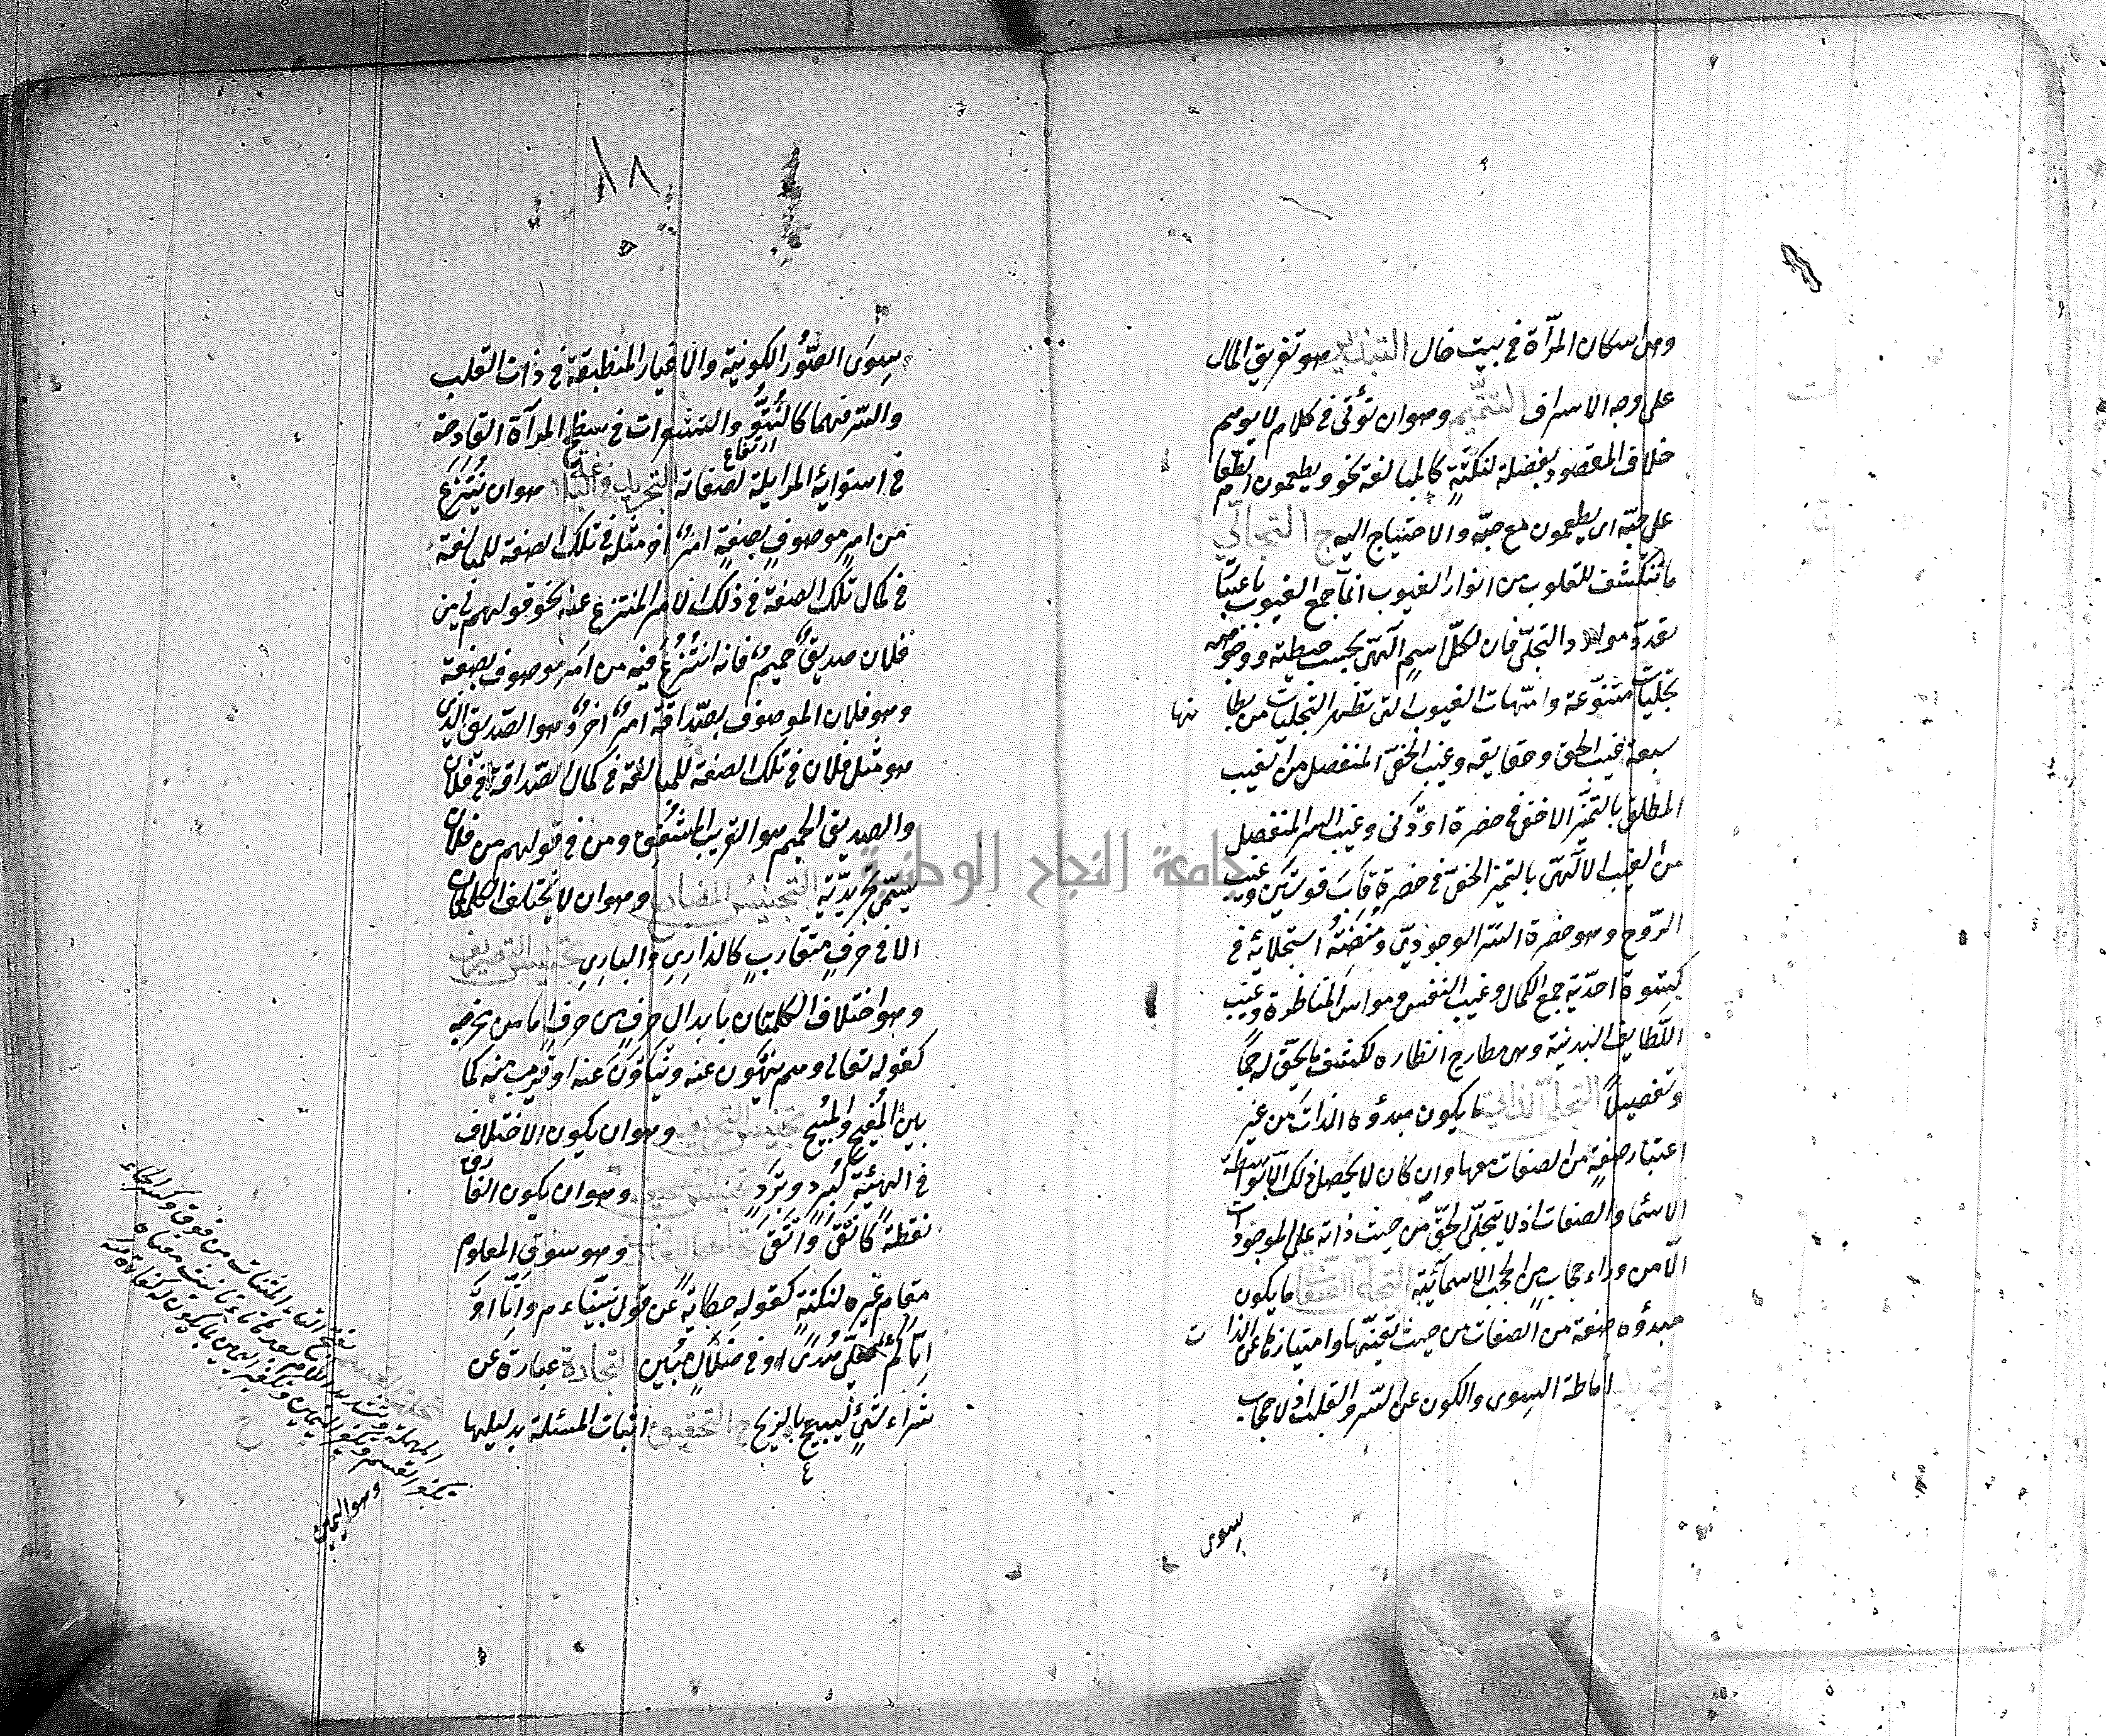 وهى اسكان المرآة فى بيت خال التبذير هو تفريق المال
على وجه الاسراف التتميم وهو ان تؤتى فى كلام لا يوهم
خلاف المقصود بفضلة لنكتة كالمبالغة نحو ويطعمون الطعام
على حبه اى يطعمون مع حبه والاحتياج اليه ج التجلى
ما تنكشف للقلوب من انوار الغيوب انما جمع الغيوب باعتبار
تعدد موارد التجلى فان لكل اسم الهى بحسب حيطته ووجوهه
تجليات متنوعة وامهات الغيوب التى تظهر التجليات من بطا
ئنها
سبعة غيب الحق وحقايقه وغيب الخفى المنفصل من الغيب
المطلق بالتميز الاخفى فى حضرة او ادنى وغيب السر المنفصل
من الغيب الالهى بالتميز الخفى فى حضرة قاب قوسين وغيب
الروح وهو حضرة السر الوجودى ومنصة استجلائه فى
كسوة احدية جمع الكمال وغيب النفس وهو انس المناظرة وغيب
اللطايف البدنية وهى مطارح انظاره لكشف ما يحق له جمعا
وتفصيلا التجلى الذاتى ما يكون مبدؤه الذات من غير
اعتبار صفة من الصفات معها وان كان لا يحصل ذلك الا بواسطة
الاسما والصفات اذ لا يتجلى الحق من حيث ذاته على الموجودات
الا من وراء حجاب من الحجب الاسمائية التجلى الصفاتى ما يكون
مبدؤه صفة من الصفات من حيث تعينها وامتيازها عن الذات
تجريد اماطة السوى والكون عن السر والقلب اذ لا حجاب
سوى
١٨
سوى الصور الكونية والاغيار المنطبعة فى ذات القلب
والسر فهما كالنتو والتشعرات فى سطح المرآة القادحة
ارتفاع
فى استوائه المزايلة لصفائه التجريد فى البلاغة هو ان ينتزع
من امر موصوف بصفة امر اخر مثله فى تلك الصفة للمبالغة
فى كمال تلك الصفة فى ذلك الامر المنتزع عنه نحو قولهم لى من
فلان صديق حميم فانه انتزع فيه من امر موصوف بصفة
وهو فلان الموصوف بصداقة امر اخر وهو الصديق الذى
هو مثل فلان فى تلك الصفة للمبالغة فى كمال الصداقة فى فلان
والصديق الحميم هو القريب المشفق ومن فى قولهم من فلان
يسمى تجريدية التجنيس المضارع وهو ان لا يختلف الكلمتان
الا فى حرف متقارب كالدارى والبارى تجنيس التصريف
وهو اختلاف الكلمتان بابدال حرف من حرف اما من مخرجه
كقوله تعالى وهم ينهون عنه وينأون عنه او قريب منه كما
بين المفيح والمبيح تجنيس التحريف وهو ان يكون الاختلاف
فى الهيئة كبرد وبرد تجنيس التصحيف وهو ان يكون الفارق
نقطة كانقى واتقى تجاهل العارف وهو سوق المعلوم
مقام غيره لنكتة كقوله حكاية عن قول نبينا ءم وانا او
اياكم لعلى هدى او فى ضلال مبين التجارة عبارة عن
شراء شئ ليبيع بالربح ج التحقيق اثبات المسئلة بدليلها
٤
بفتح التاء المثناة من فوق وكسر الحاء
المهملة وتشديد اللام بعدها تاء تأنيث معناه
وهو اليمين
جامعة النجاح الوطنية